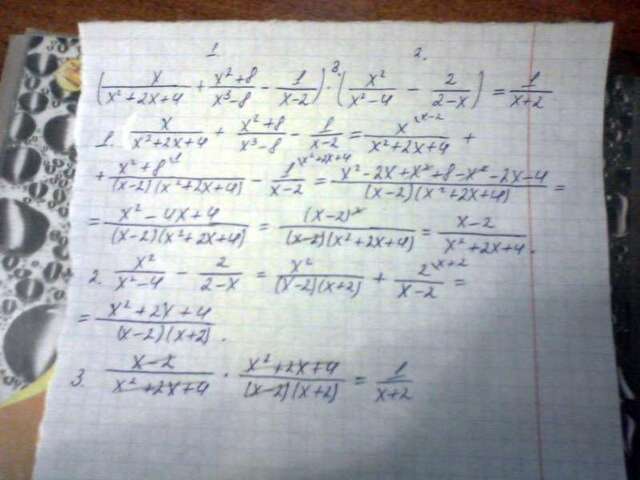 1. 3. 2.
(x/(x²+2x+4) + (x²+8)/(x³-8) - 1/(x-2)) · (x²/(x²-4) - 2/(2-x)) = 1/(x+2)
1. x/(x²+2x+4) + (x²+8)/(x³-8) - 1/(x-2) = x^(\x-2)/(x²+2x+4) +
+ (x²+8)^(\1)/((x-2)(x²+2x+4)) - 1^(\x²+2x+4)/(x-2) = (x²-2x+x²+8-x²-2x-4)/((x-2)(x²+2x+4)) =
= (x²-4x+4)/((x-2)(x²+2x+4)) = (x-2)²/((x-2)(x²+2x+4)) = (x-2)/(x²+2x+4).
2. x²/(x²-4) - 2/(2-x) = x²/((x-2)(x+2)) + 2^(\x+2)/(x-2) =
= (x²+2x+4)/((x-2)(x+2)).
3. (x-2)/(x²+2x+4) · (x²+2x+4)/((x-2)(x+2)) = 1/(x+2)